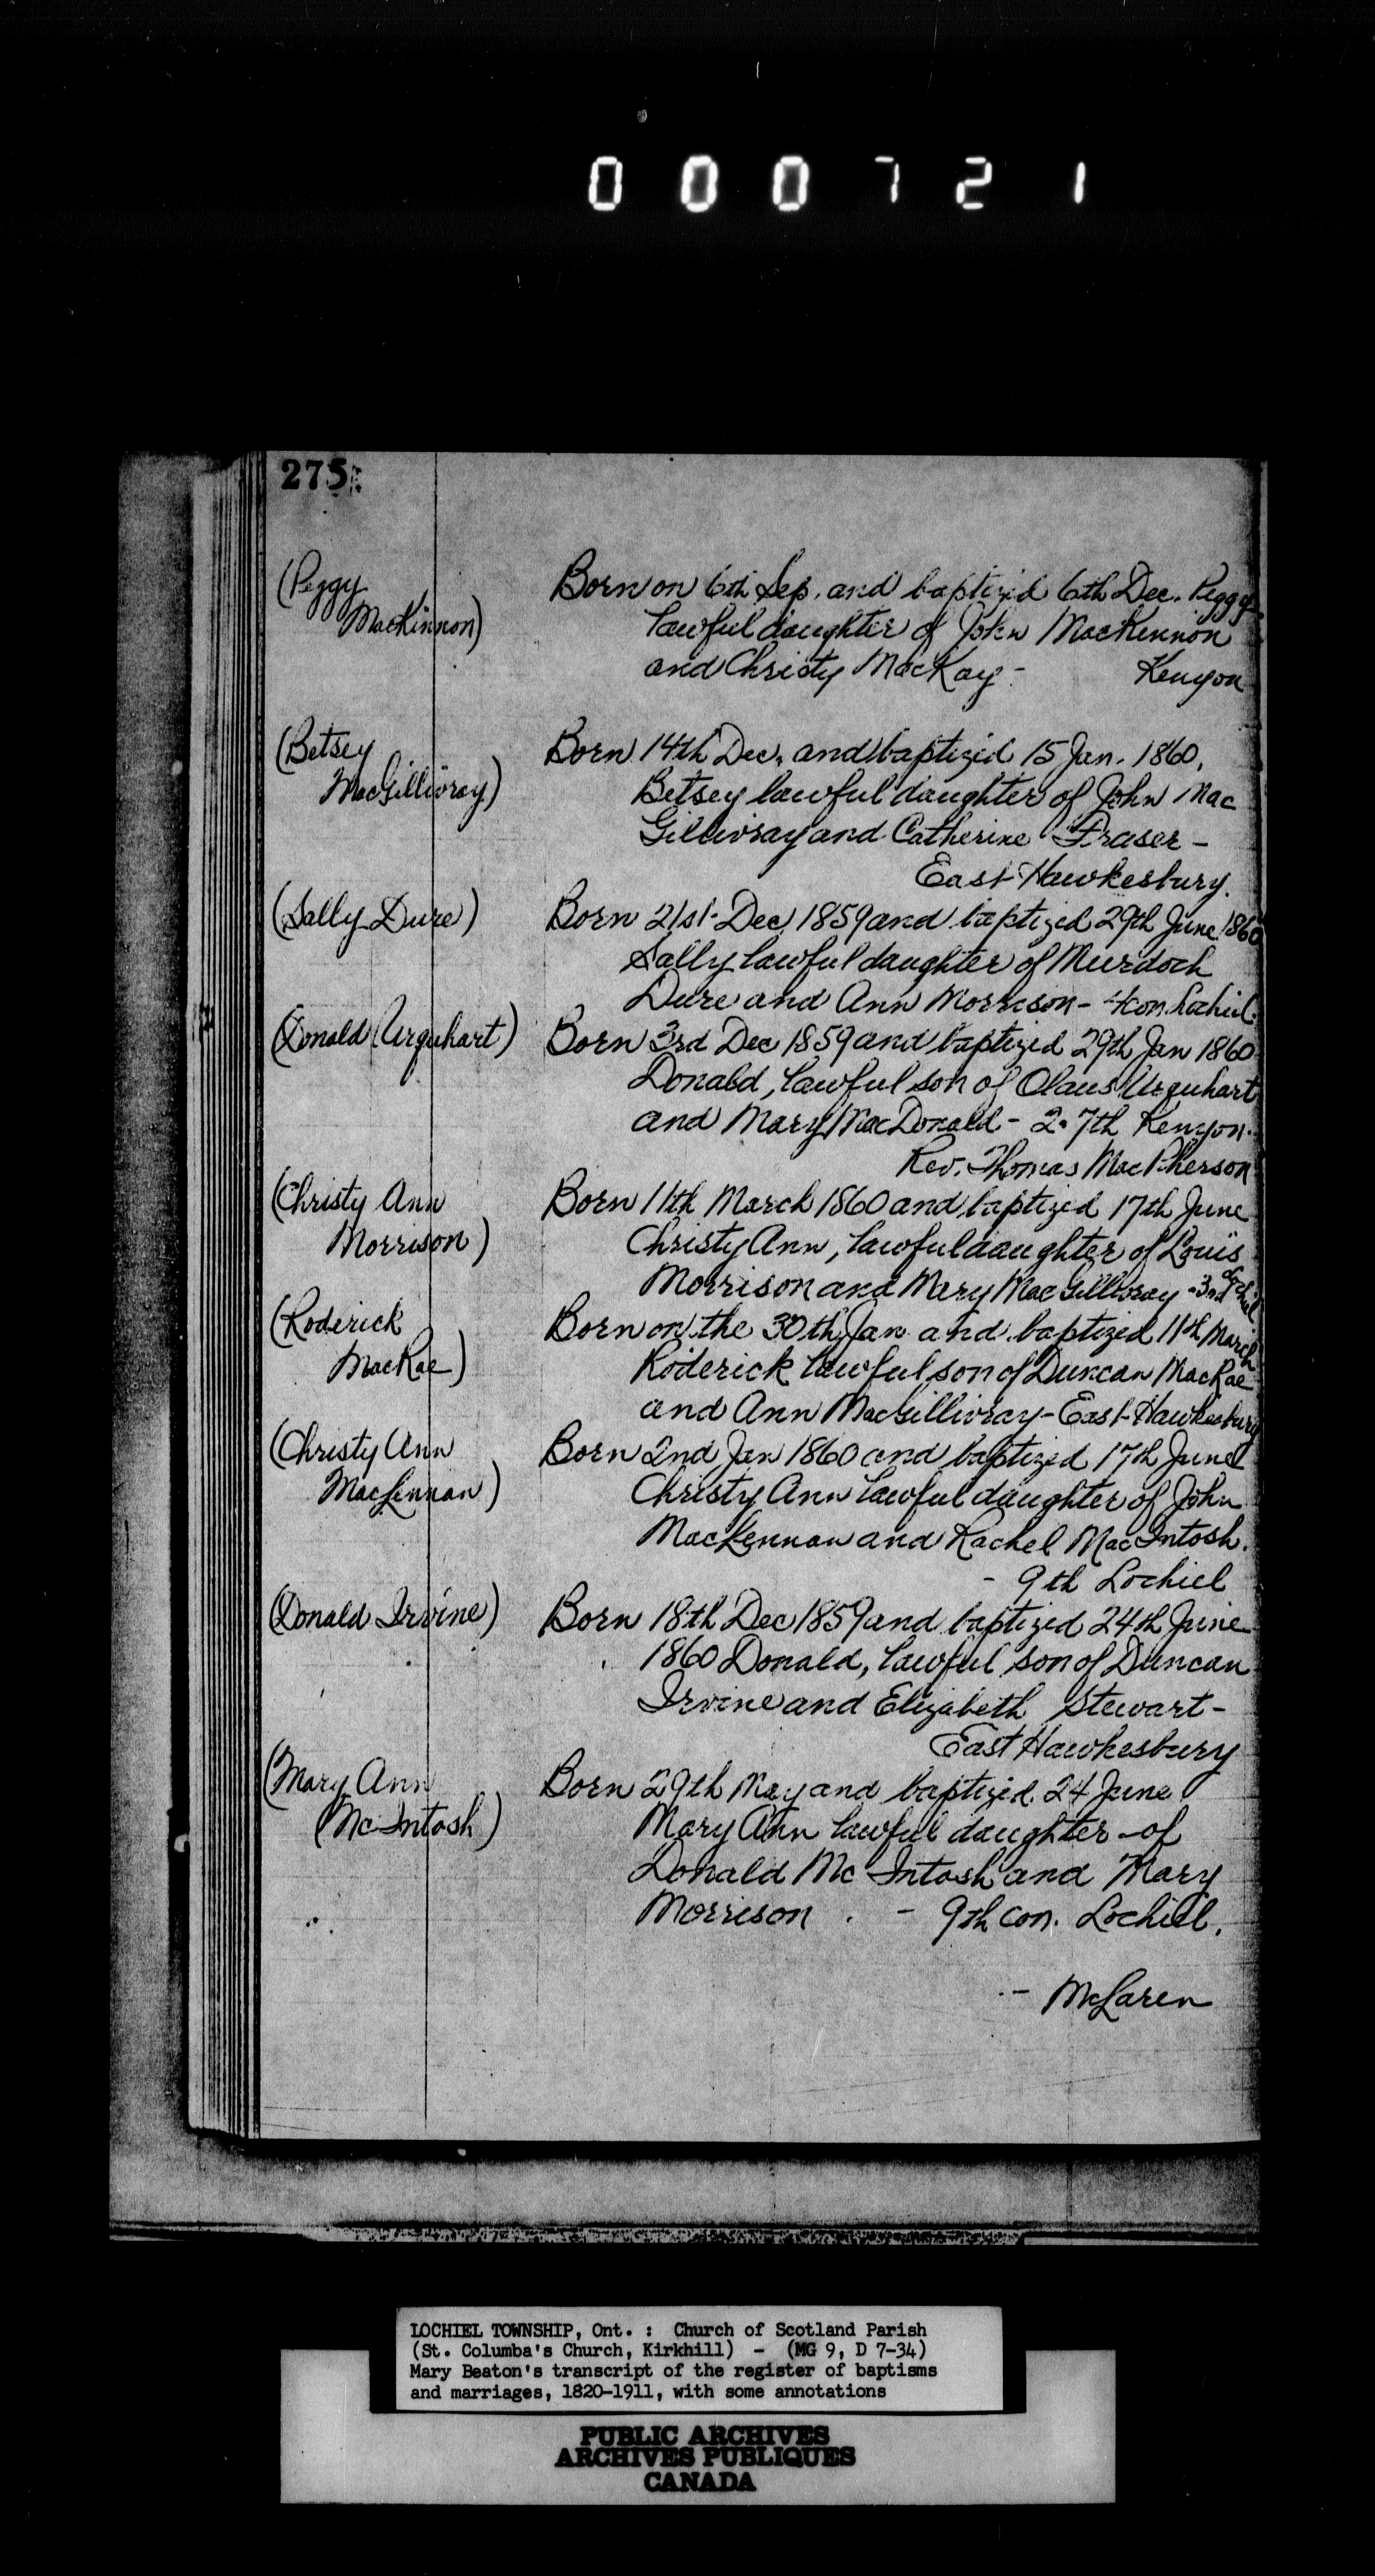 000721
275
(Peggy
MacKinnon)
Born on 6th Sep. and baptized 6th Dec. Peggy
lawful daughter of John MacKinnon
and Christy MacKay - Kenyon
(Betsey
MacGillivray)
Born 14th Dec. and baptized 15 Jan. 1860,
Betsey lawful daughter of John Mac
Gillivray and Catherine Fraser -
East Hawkesbury.
(Sally Dure)
Born 21st Dec. 1859 and baptized 29th June 1860
Sally lawful daughter of Murdoch
Dure and Ann Morrison - 4 con. Lochiel.
(Donald Urquhart)
Born 3rd Dec 1859 and baptized 29th Jan 1860
Donald, lawful son of Olaus Urquhart
and Mary MacDonald - 2.7th Kenyon.
Rev. Thomas MacPherson
(Christy Ann
Morrison)
Born 11th March 1860 and baptized 17th June
Christy Ann, lawful daughter of Louis
Morrison and Mary MacGillivray - 3rd Lochiel
(Roderick
MacRae)
Born on the 30th Jan and baptized 11th March
Roderick lawful son of Duncan MacRae
and Ann MacGillivray - East Hawkesbury
(Christy Ann
MacLennan)
Born 2nd Jan 1860 and baptized 17th June
Christy Ann lawful daughter of John
MacLennan and Rachel MacIntosh.
- 9th Lochiel
(Donald Irvine)
Born 18th Dec 1859 and baptized 24th June
1860 Donald, lawful son of Duncan
Irvine and Elizabeth Stewart -
East Hawkesbury
(Mary Ann
(McIntosh)
Born 29th May and baptized 24 June
Mary Ann lawful daughter of
Donald McIntosh and Mary
Morrison. - 9th con. Lochiel.
- McLaren
LOCHIEL TOWNSHIP, Ont. : Church of Scotland Parish
(St. Columba's Church, Kirkhill) - (MG 9, D 7-34)
Mary Beaton's transcript of the register of baptisms
and marriages, 1820-1911, with some annotations
PUBLIC ARCHIVES
ARCHIVES PUBLIQUES
CANADA